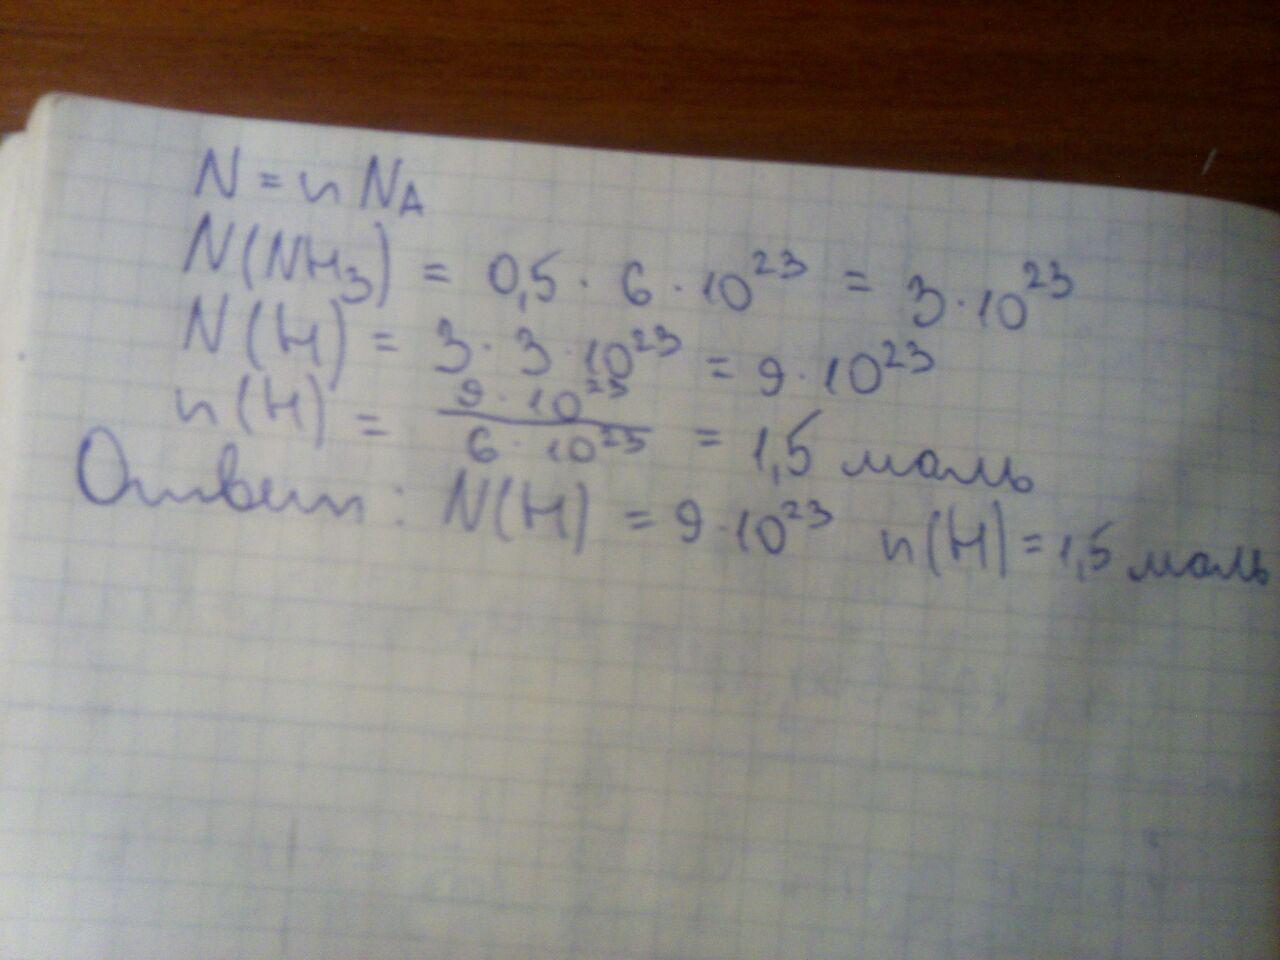 N = n N_A
N(NH₃) = 0,5 · 6 · 10²³ = 3 · 10²³
N(H) = 3 · 3 · 10²³ = 9 · 10²³
n(H) = 9 · 10²³ / 6 · 10²³ = 1,5 моль
Ответ: N(H) = 9 · 10²³ n(H) = 1,5 моль